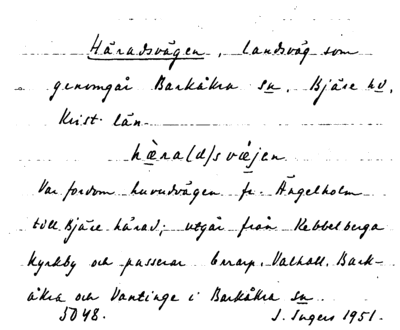 Häradsvägen, landsväg som
genomgår Barkåkra sn, Bjäre hd,
Krist. län.
hæ̀ra(d)svæ̀jen
Var fordom huvudvägen fr. Ängelholm
till Bjäre härad; utgår från Rebbelberga
kyrkby och passerar Errarp, Valhall, Bark-
åkra och Vantinge i Barkåkra sn
5048. J. Ingers 1951.